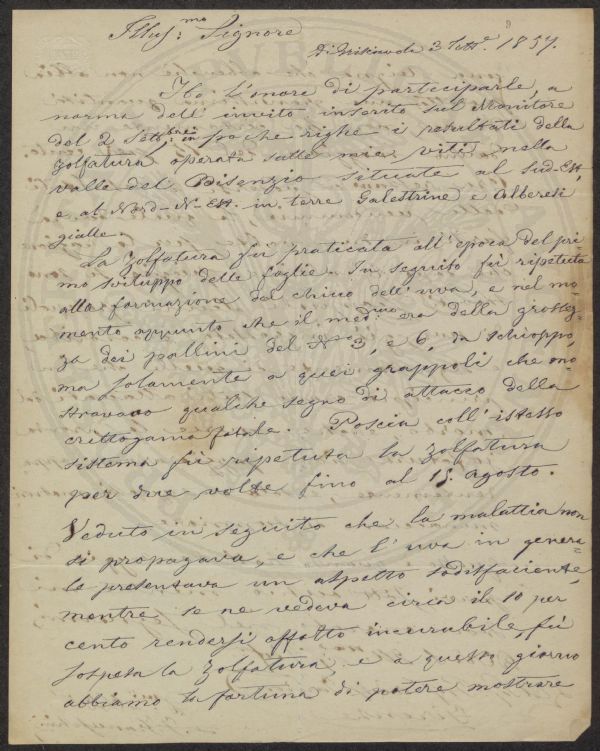 Illus:mo Signore
3 Sett.e 1857.
Ho l'onore di parteciparle, a
norma dell'invito inserito sul Monitore
del 2 Sett:bre in poche righe i resultati della
zolfatura operata sulle mie viti nella
valle del Bisenzio situate al Sud-Est,
e al Nord-N-Est in terre Galestrine e Alberesi
gialle.
La zolfatura fù praticata all'epoca del pri=
mo sviluppo delle foglie. In seguito fù ripetuta
alla formazione del chicco dell'uva, e nel mo=
mento appunto che il med:mo era della grossez=
za dei pallini del N.o 3, e 6, da schioppo,
ma solamente a quei grappoli che mo=
stravano qualche segno di attacco della
crittogama fatale. Poscia coll'istesso
sistema fù ripetuta la zolfatura
per due volte fino al 15. agosto.
Veduto in seguito che la malattia non
si propagava, e che l'uva in genera=
le presentava un aspetto sodisfaciente,
mentre se ne vedeva circa il 10 per
cento rendersi affatto incurabile, fù
sospesa la zolfatura, e a questo giorno
abbiamo la fortuna di potere mostrare